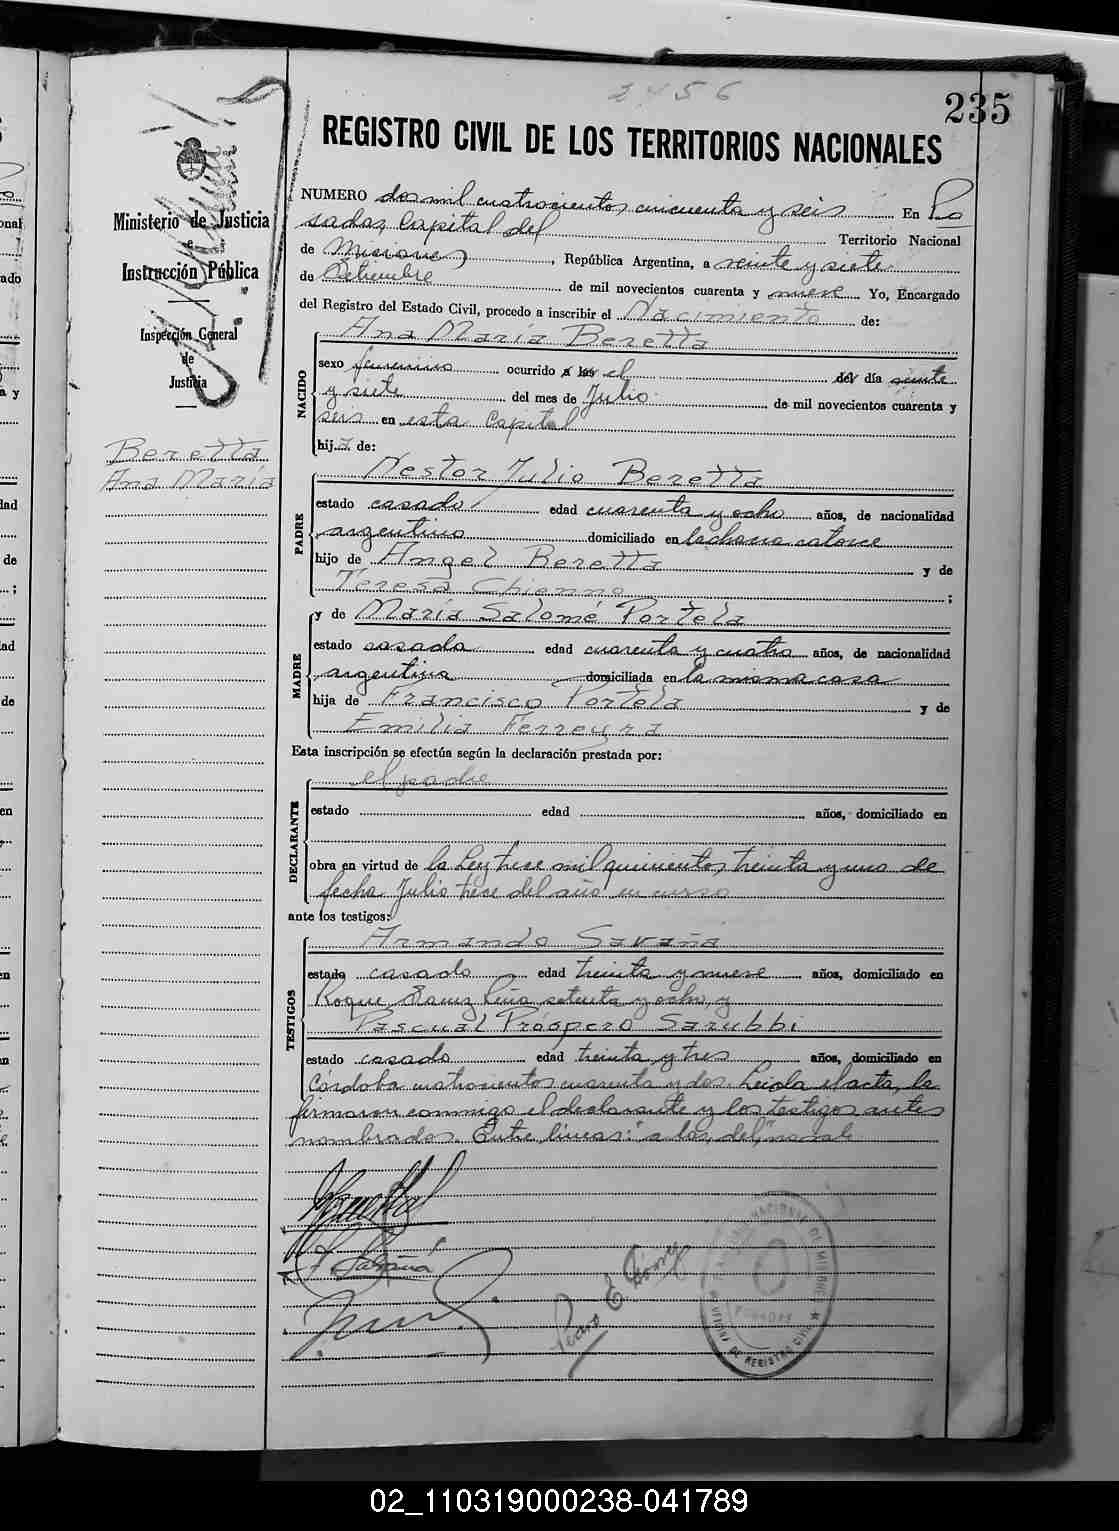 2456
235
REGISTRO CIVIL DE LOS TERRITORIOS NACIONALES
Ministerio de Justicia
e
Instrucción Pública
Inspección General
de
Justicia
Beretta
Ana María
NUMERO dos mil cuatrocientos cincuenta y seis En Po
sadas, Capital del Territorio Nacional
de Misiones, República Argentina, a veinte y siete
de Setiembre de mil novecientos cuarenta y nueve Yo, Encargado
del Registro del Estado Civil, procedo a inscribir el Nacimiento de:
NACIDO
Ana María Beretta
sexo femenino ocurrido a las el del día veinte
y siete del mes de Julio de mil novecientos cuarenta y
seis en esta Capital
hija de:
PADRE
Nestor Julio Beretta
estado casado edad cuarenta y ocho años, de nacionalidad
argentino domiciliado en la chacra catorce
hijo de Angel Beretta y de
Teresa Chionno;
MADRE
y de María Salomé Portela
estado casada edad cuarenta y cuatro años, de nacionalidad
argentina domiciliada en la misma casa
hija de Francisco Portela y de
Emilia Ferreyra
Esta inscripción se efectúa según la declaración prestada por:
DECLARANTE
el padre
estado edad años, domiciliado en
obra en virtud de la Ley trece mil quinientos treinta y uno de
fecha Julio trece del año en curso
ante los testigos:
TESTIGOS
Armando Savaña
estado casado edad treinta y nueve años, domiciliado en
Roque Saenz Peña setenta y ocho, y
Pascual Próspero Sarubbi
estado casado edad treinta y tres años, domiciliado en
Córdoba cuatrocientos cuarenta y dos. Leida el acta, la
firmaron conmigo el declarante y los testigos antes
nombrados. Entre líneas: "a las, del," no vale
Pedro E.
OFICINA DE REGISTRO CIVIL
POSADAS
02_110319000238-041789